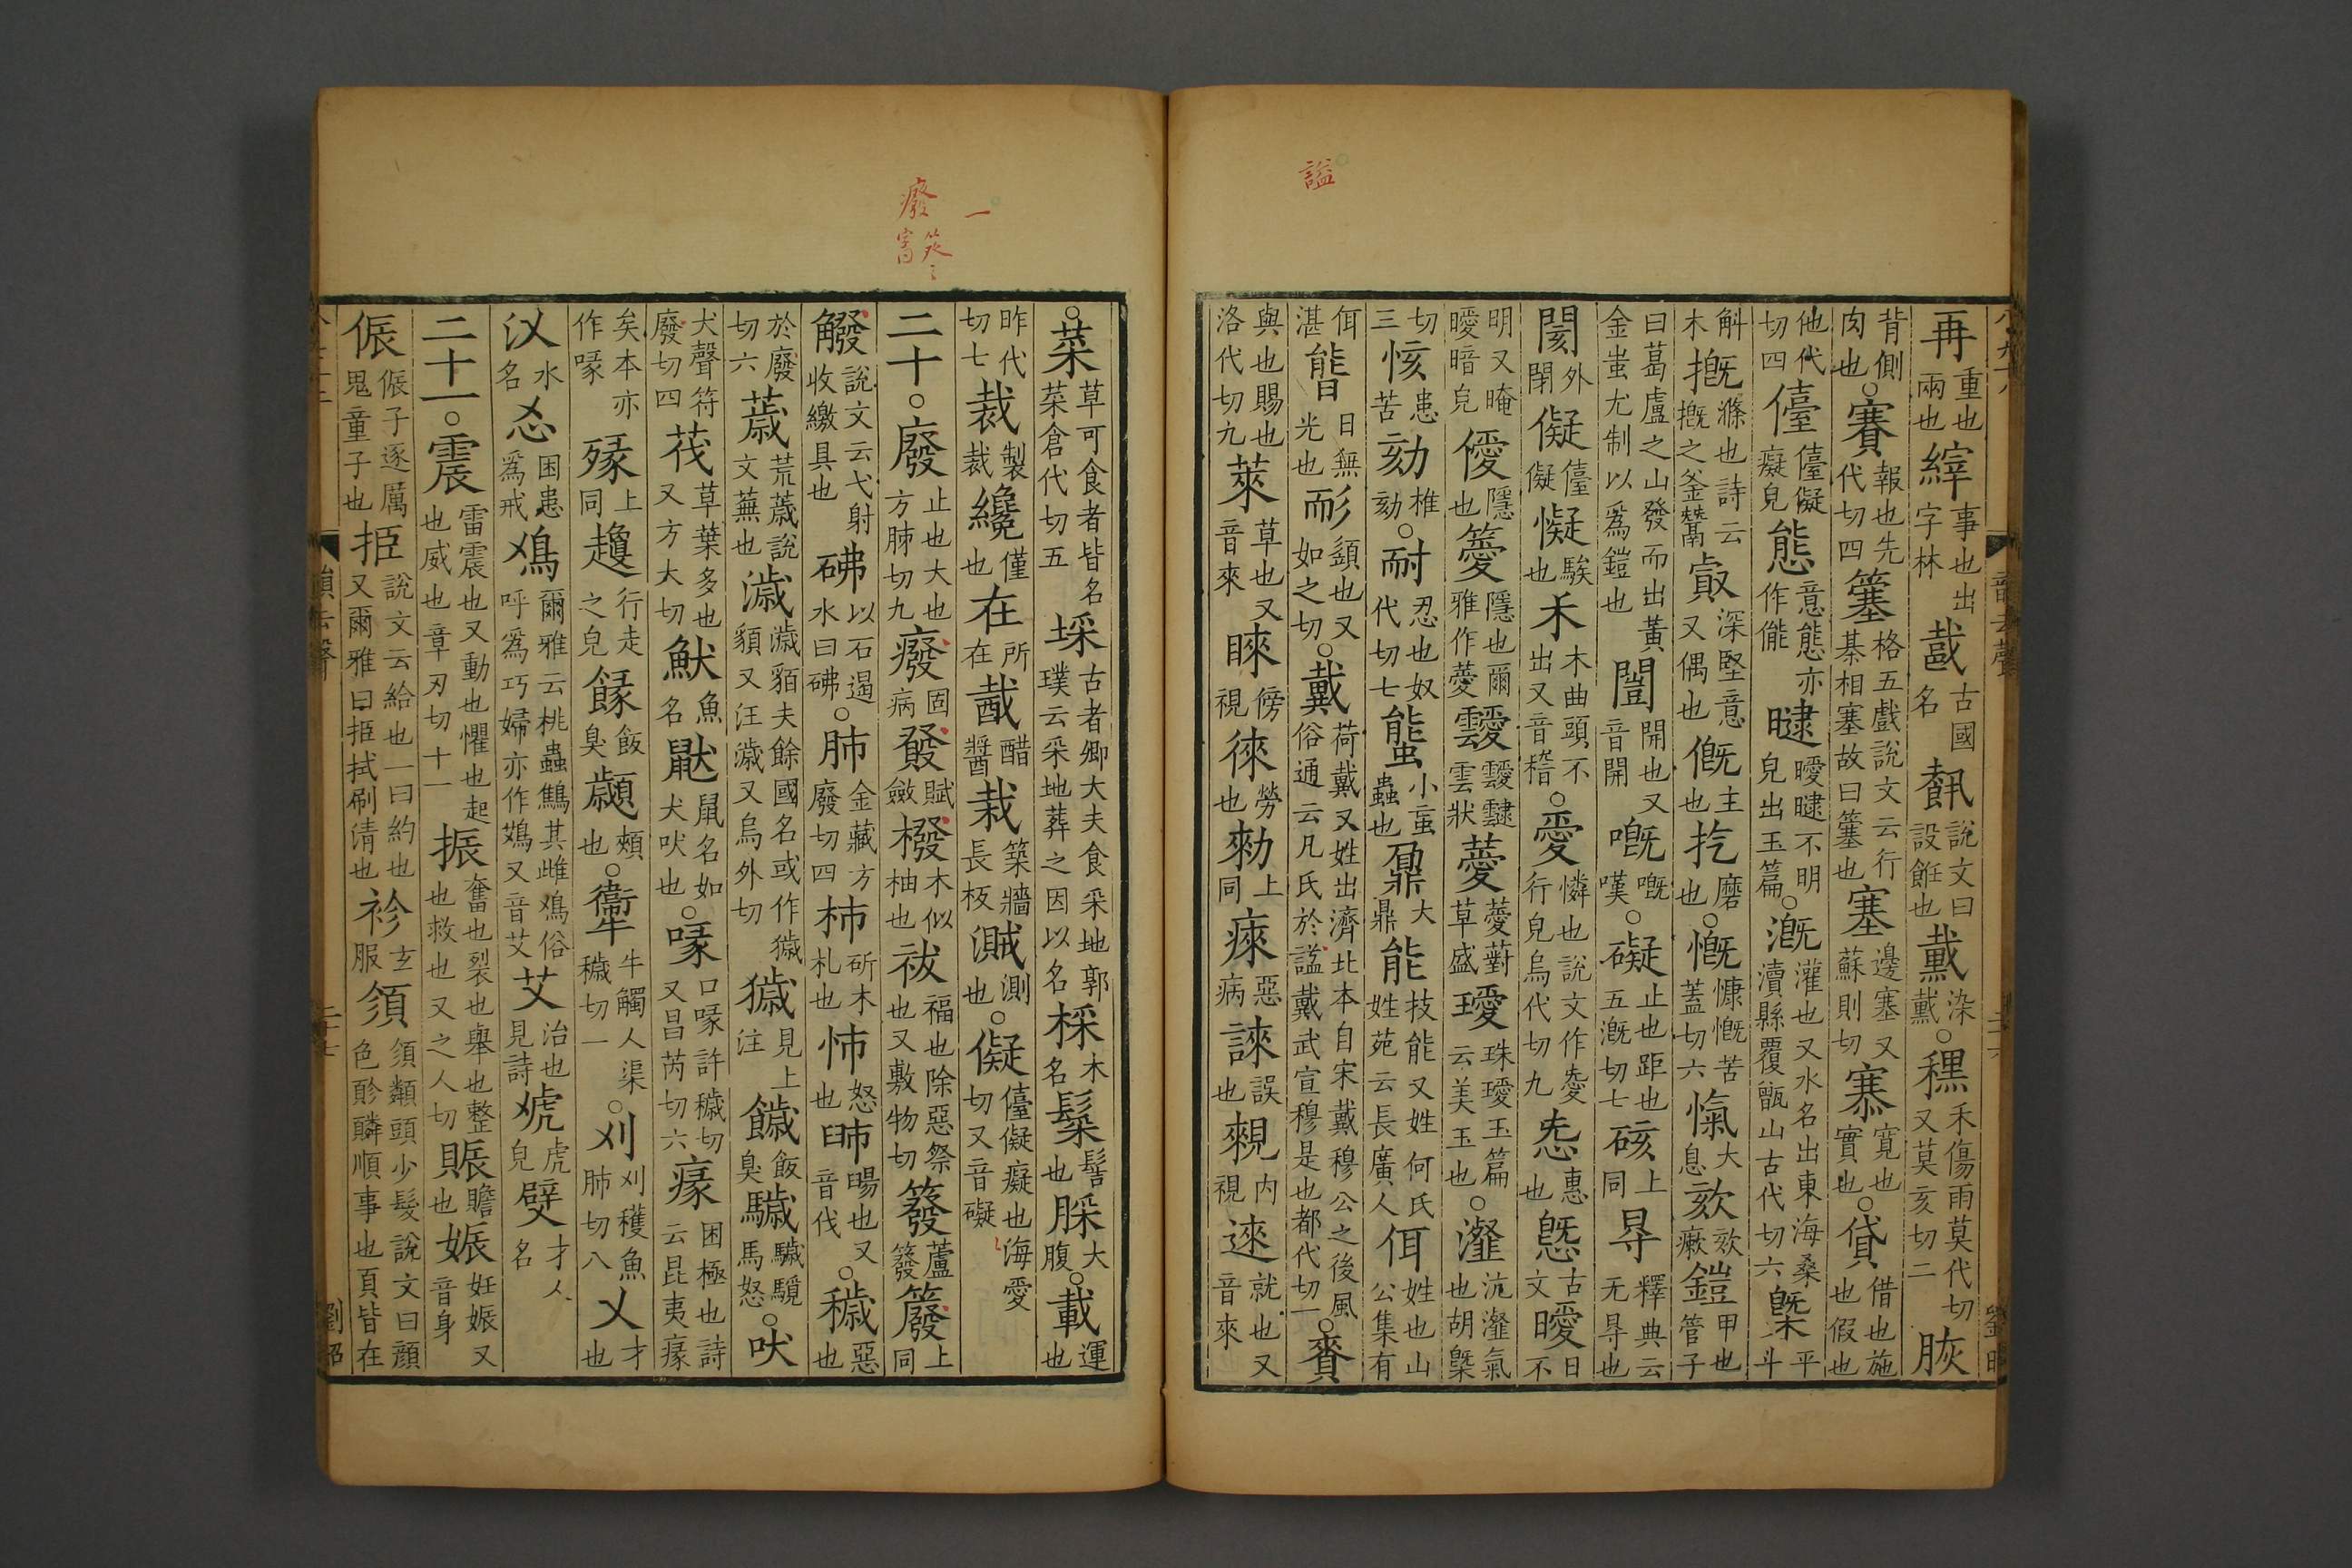 謚
再重也兩也縡事也出字林㦲古國名𩚳說文曰設餁也黱染黱○䆀禾傷雨莫代切又莫亥切二脄
背側肉也○賽報也先代切四簺格五戲說文云行棊相塞故曰簺也塞邊塞又蘇則切寨寔也實也○貸借也施也假也
他代切四儓儓儗癡皃態意態亦作能曃曖曃不明皃出玉篇○溉灌也又水名出東海桑瀆縣覆甑山古代切六槩平斗
斛木摡滌也詩云摡之釜鬵叡深堅意又偶也㮣主也扢磨也○慨慷慨苦蓋切六愾大息欬欬瘶鎧甲也管子
曰葛盧之山發而出黃金蚩尤制以爲鎧也闓開也又音開嘅嘅嘆○礙止也距也五溉切七硋上同㝵釋典云无㝵也
閡外閉儗儓儗懝騃也禾木曲頭不出又音稽○愛憐也說文作㤅行皃烏代切九㤅惠也㤅古文曖日不
明又晻曖暗皃僾隱也薆隱也爾雅作薆靉靉靆雲狀薆薆薱草盛璦珠璦玉篇云美玉也○瀣沆瀣氣也胡槩
切三㤥患苦劾推劾○耐忍也奴代切七螚小䖟蟲也鼐大鼎能技能又姓何氏姓苑云長廣人佴姓也山公集有
佴湛㲌日無光也耏頦也又如之切○戴荷戴又姓出濟北本自宋戴穆公之後風俗通云凡氏於謚戴武宣穆是也都代切一○賚
與也賜也洛代切九萊草也又音來睞傍視徠勞也勑上同㾢惡病誺誤也覝内視逨就也又音來
一
癈 癹
○菜草可食者皆名菜倉代切五埰古者卿大夫食采地郭璞云采地葬之因以名棌木名髹髻也䐆大腹○載運也
昨代切七裁製裁纔僅也在所在𨠵醋醬栽築牆長板溨測也○儗儓儗癡也海愛切又音礙
二十○廢止也大也方肺切九癈固病𧶙賦斂橃木似柚也祓福也除惡祭也又敷物切䇅蘆䇅簾上同
𧤏說文云弋射收繳具也砩以石遏水曰砩○肺金藏方廢切四杮斫木札也怖怒也昁暘也又音伐○穢惡也
於廢切六薉荒薉說文蕪也濊濊貊夫餘國名或作獩貊又汪濊又烏外切獩見上注䭁飯臭𩦲𩦲䮗馬怒○吠
犬聲符廢切四茷草葉多也又方大切䱙魚名鼥鼠名如犬吠也○喙口喙許穢切又昌芮切六㾱困極也詩云昆夷㾱
矣本亦作喙㱱上同𧽜行走之皃餯飯臭顪頰也○𤜂牛觸人渠穢切一○刈刈穫魚肺切八乂才也
㳄水名忢困患爲戒鳼爾雅云桃蟲鷦其雌鳼俗呼爲巧婦亦作鴱又音艾艾治也見詩虓虎皃嬖才人名
二十一○震雷震也又動也懼也起也威也章刃切十一振奮也裂也舉也整也救也又之人切賑贍也娠妊娠又音身
侲侲子逐厲鬼童子也挋說文云給也一曰約也又爾雅曰挋拭刷清也袗玄服㐱㐱䫰頭少髮說文曰顏色㐱䫰順事也頁皆在